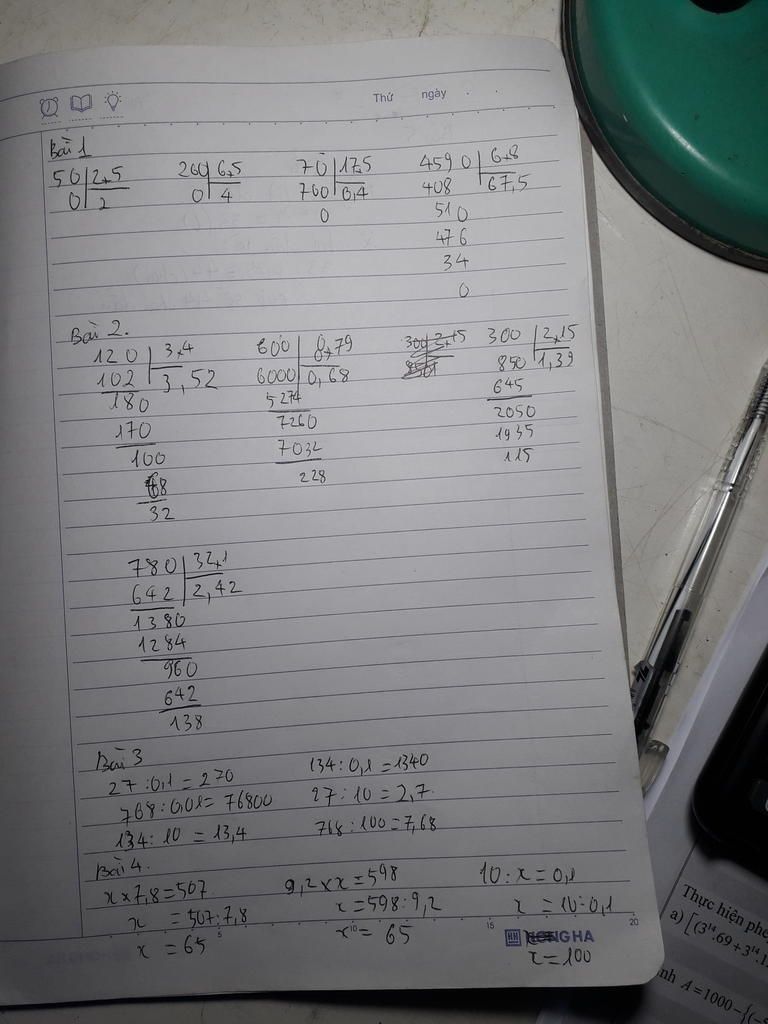 Thứ ngày
Bài 1
50 2,5 260 6,5 70 17,5 4590 6,8
0 2 0 4 700 0,4 408 67,5
0 510
476
34
0
Bài 2.
120 3,4 600 8,79 300 2,15
102 3,52 6000 0,68 850 1,39
180 5274 645
170 7260 2050
100 7032 1935
68 228 115
32
780 32,1
642 2,42
1380
1284
960
642
138
Bài 3
27 : 0,1 = 270 134 : 0,1 = 1340
768 : 0,01 = 76800 27 : 10 = 2,7
134 : 10 = 13,4 768 : 100 = 7,68
Bài 4.
x × 7,8 = 507 9,2 × x = 598 10 : x = 0,1
x = 507 : 7,8 x = 598 : 9,2 x = 10 : 0,1
x = 65 x = 65 x = 100
5 10 15 20
HONG HA
Thực hiện phé
a) [(3¹⁴.69 + 3¹⁴.1
nh A = 1000 − {(−5